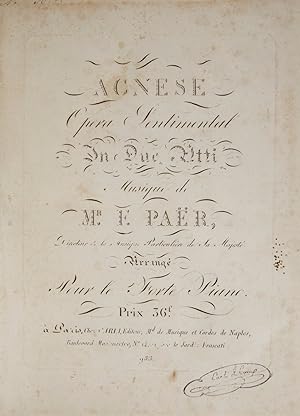 AGNESE
Opera Sentimental
In Due Atti
Musique de
Mr. F. PAËR,
Directeur de la Musique Particulière de Sa Majesté
Arrangé
Pour le Forte Piano.
Prix 36f.
à Paris, Chez CARLI, Editeur, Md. de Musique et Cordes de Naples,
Boulevard Montmartre, No. 14, le Jard. Frascati
953.